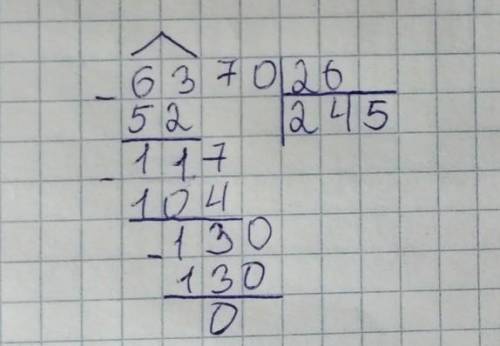 6370 26
- 52 245
117
- 104
130
- 130
0